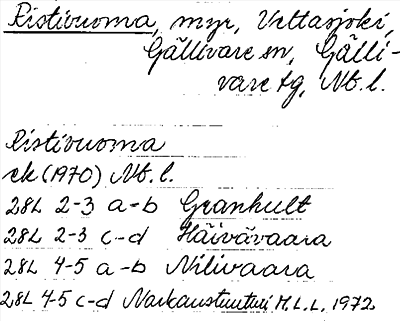 Ristivuoma, myr, Vettasjoki,
Gällivare sn, Gälli-
vare tg, Nb. l.
Ristivuoma
ek (1970) Nb. l.
28L 2-3 a-b Granhult
28L 2-3 c-d Häivävaara
28L 4-5 a-b Nilivaara
28L 4-5 c-d Narkaustunturi M.L.L. 1972